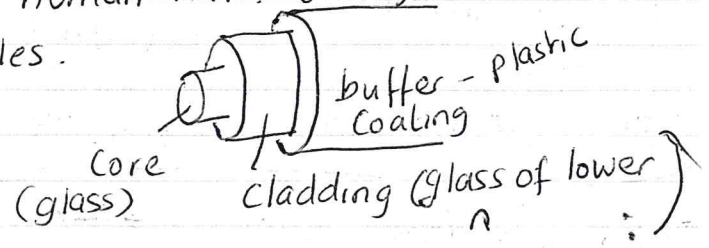 human
les.
buffer - plastic
coating
Core
(glass)
cladding (glass of lower
n